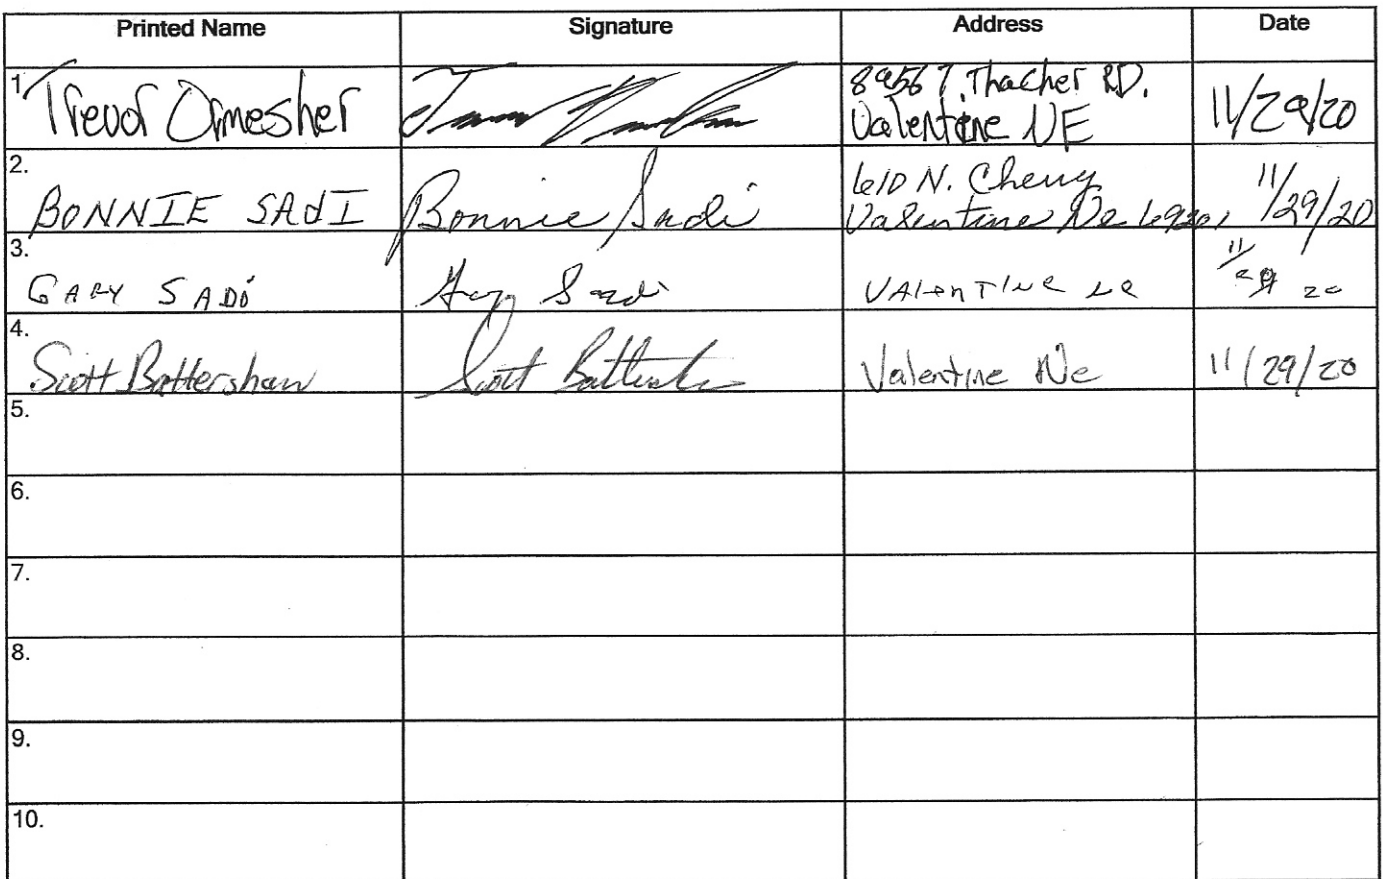 Printed Name Signature Address Date
1. Trevor Ormesher 89567 Thacher RD.
Valentine NE 11/29/20
2. BONNIE SAdI Bonnie Sadi 610 N. Cherry
Valentine Ne 69201 11/29/20
3. GARY SADi Gary Sadi VAlenTine ne 11/29 20
4. Scott Battershaw Scott Valentine Ne 11/29/20
5.
6.
7.
8.
9.
10.